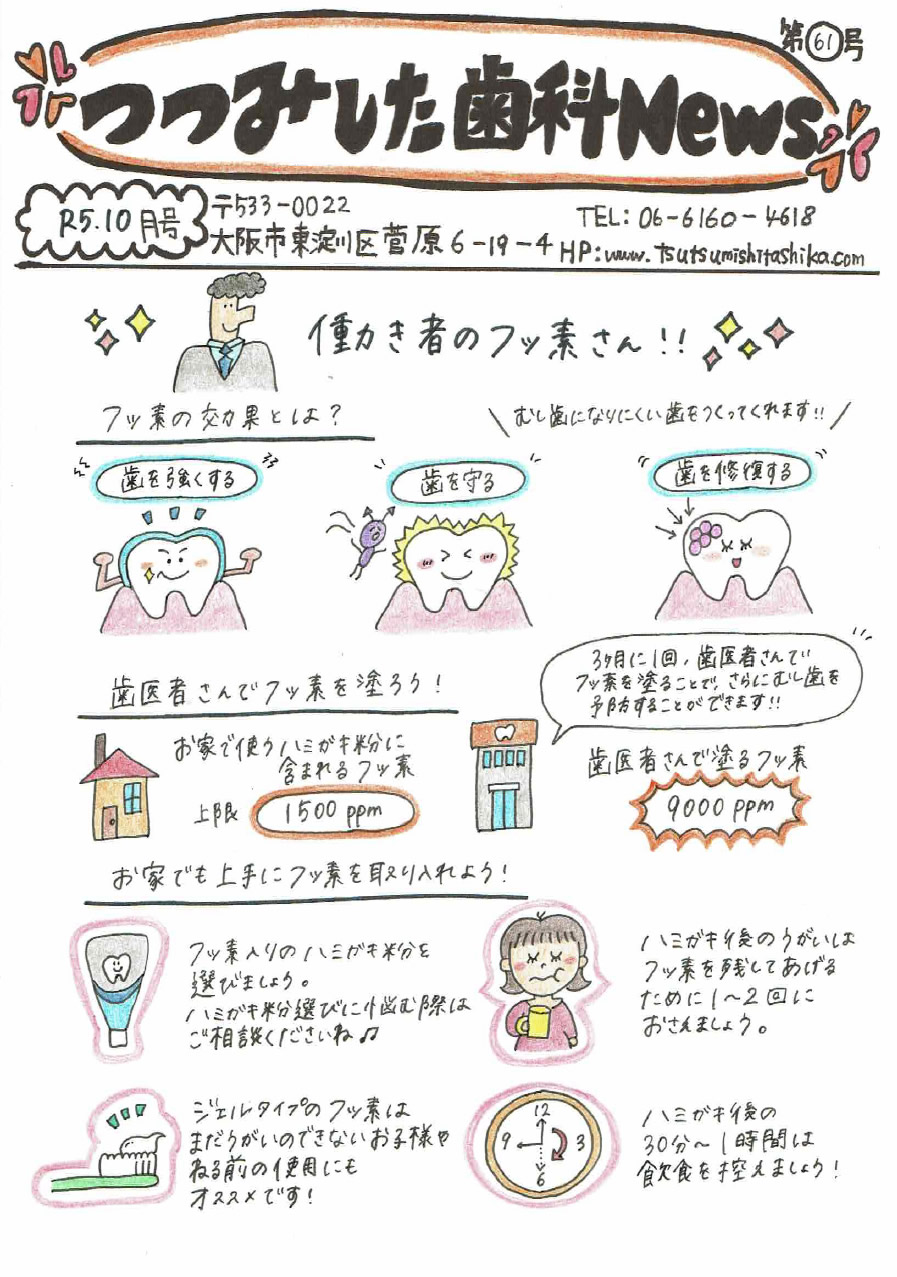 第61号
つつみした歯科News
R5.10月号
〒533-0022
大阪市東淀川区菅原6-19-4
TEL: 06-6160-4618
HP: www.tsutsumishitashika.com
働き者のフッ素さん!!
フッ素の効果とは?
\むし歯になりにくい歯をつくってくれます!!/
歯を強くする
歯を守る
歯を修復する
歯医者さんでフッ素を塗ろう!
3ヶ月に1回、歯医者さんで
フッ素を塗ることで、さらにむし歯を
予防することができます!!
お家で使うハミガキ粉に
含まれるフッ素
上限 1500 ppm
歯医者さんで塗るフッ素
9000 ppm
お家でも上手にフッ素を取り入れよう!
フッ素入りのハミガキ粉を
選びましょう。
ハミガキ粉選びに悩む際は
ご相談くださいね♫
ハミガキ後のうがいは
フッ素を残してあげる
ために1〜2回に
おさえましょう。
ジェルタイプのフッ素は
まだうがいのできないお子様や
ねる前の使用にも
オススメです!
12
9 3
6
ハミガキ後の
30分〜1時間は
飲食を控えましょう!